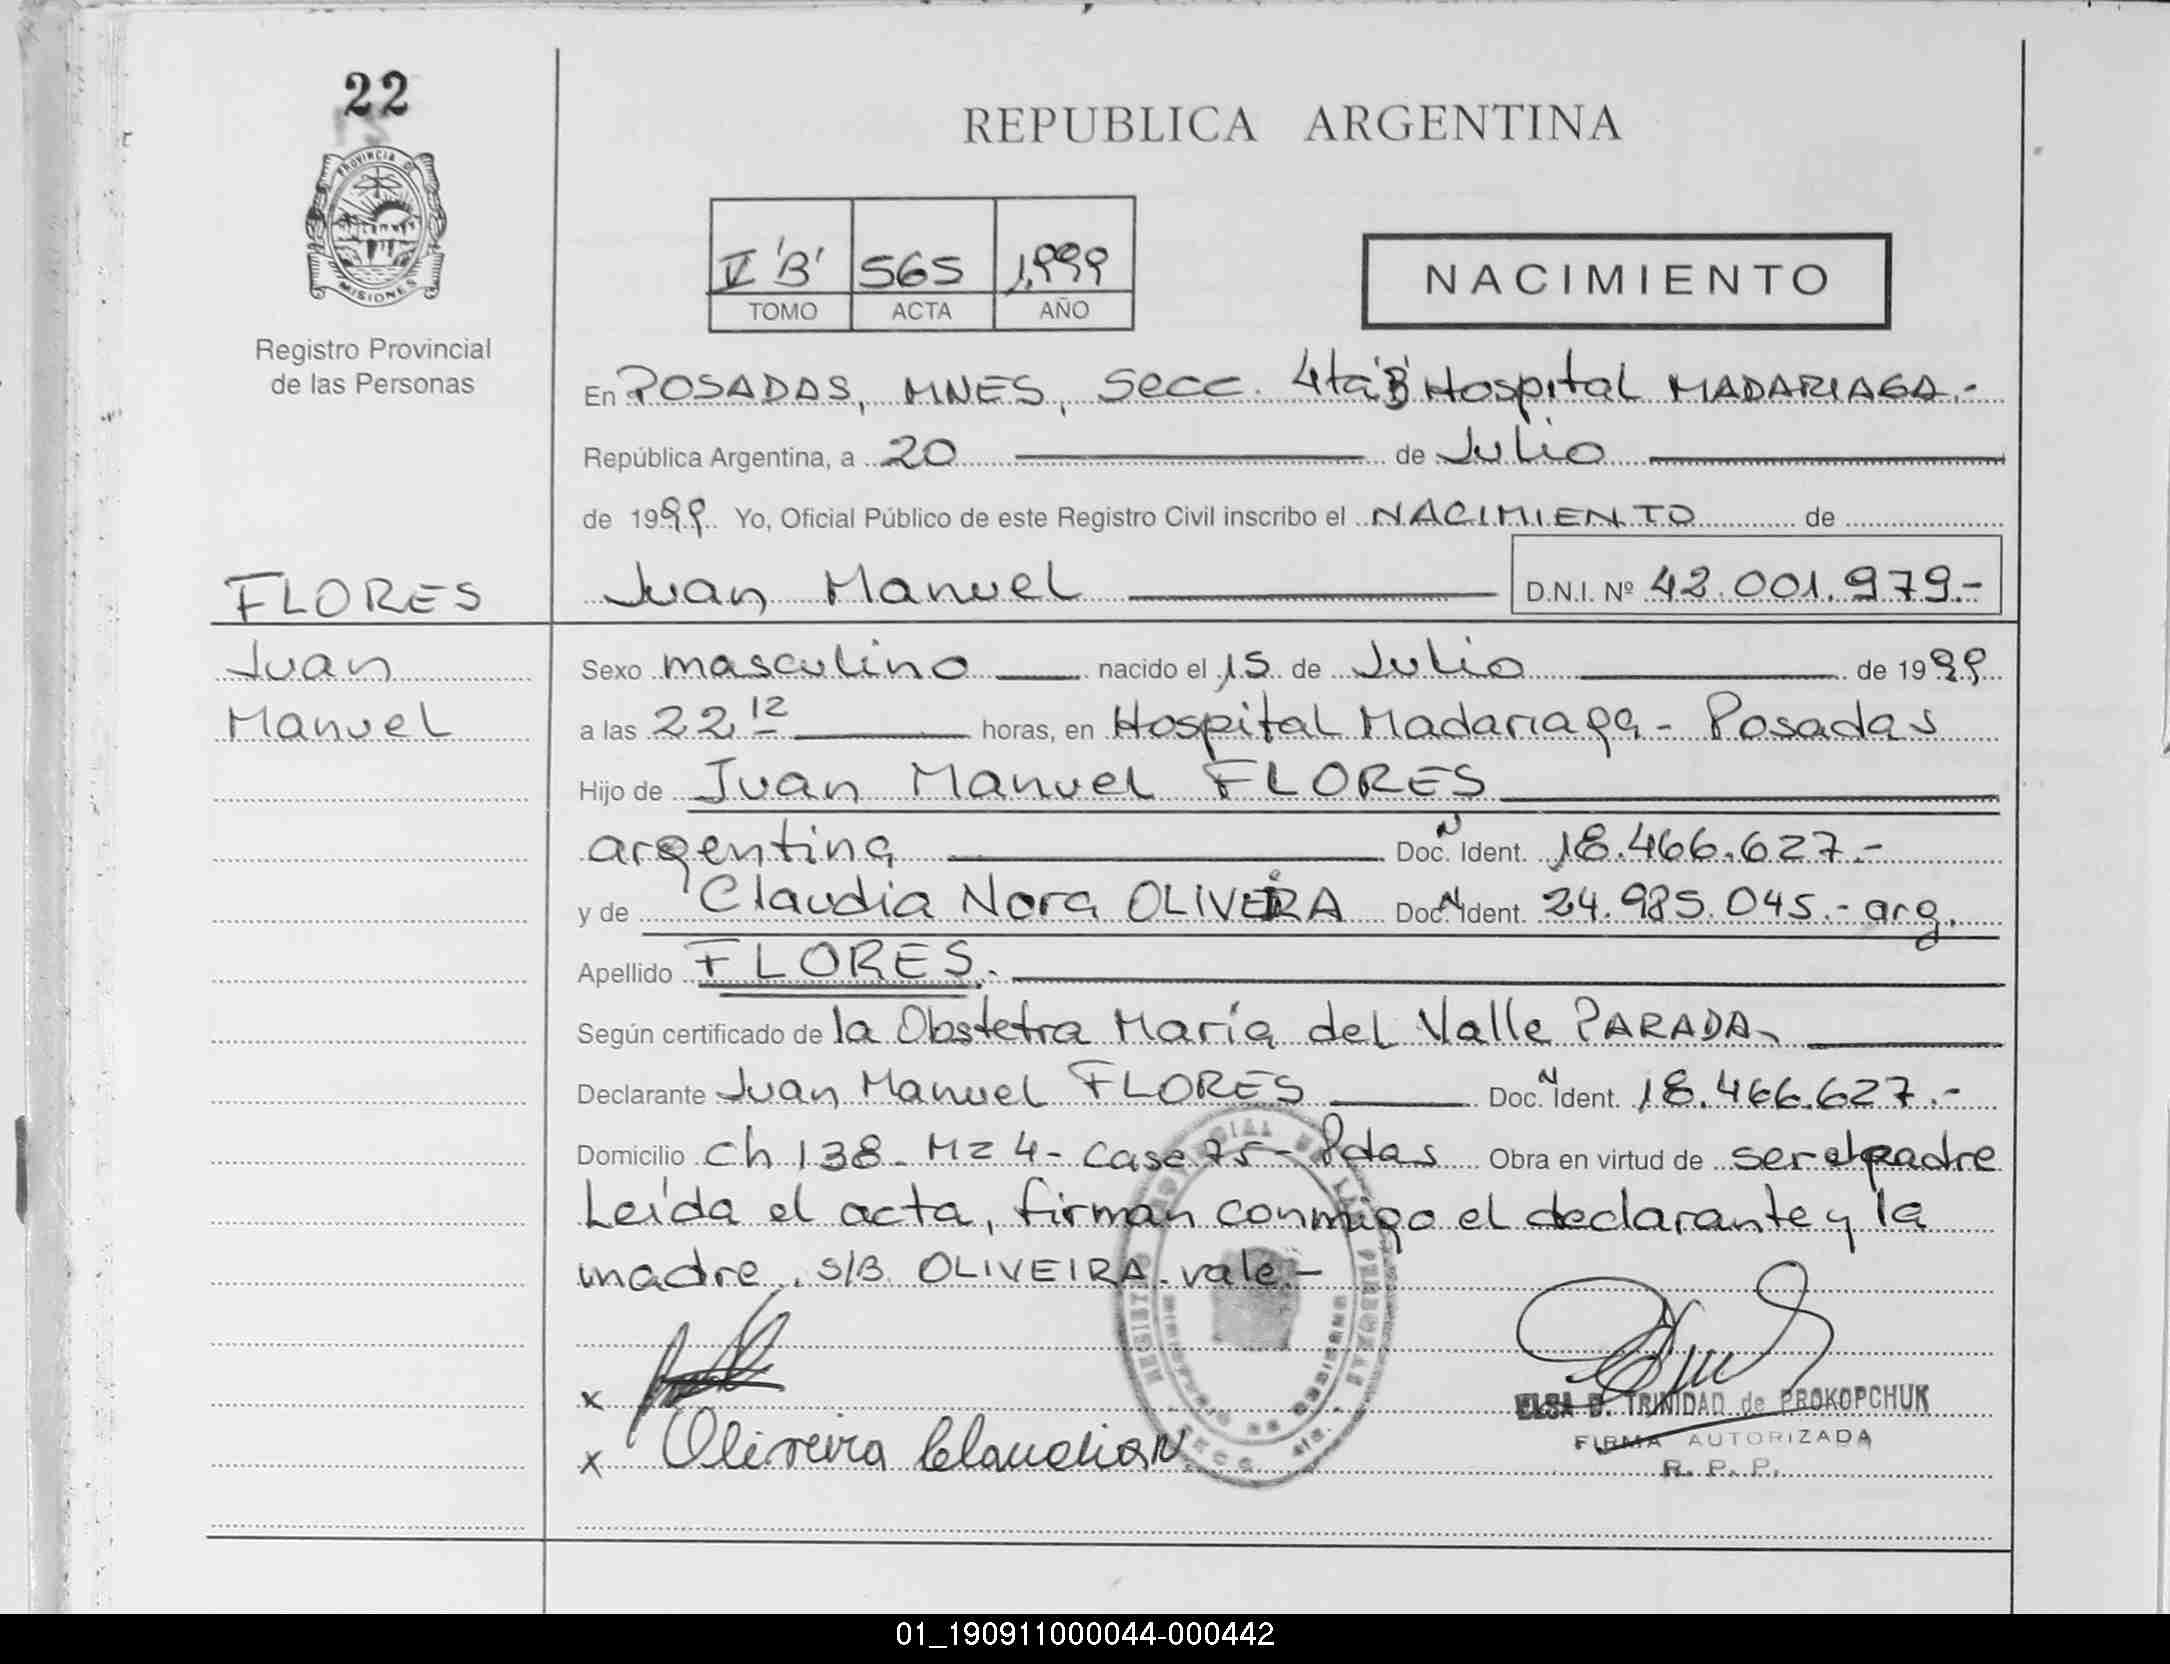 22
PROVINCIA DE
MISIONES
Registro Provincial
de las Personas
REPUBLICA ARGENTINA
V 'B' 565 1,999
TOMO ACTA AÑO
NACIMIENTO
En POSADAS, MNES, Secc. 4ta 'B' Hospital MADARIAGA.-
República Argentina, a 20 de Julio
de 1999. Yo, Oficial Público de este Registro Civil inscribo el NACIMIENTO de
FLORES Juan Manuel D.N.I. Nº 42.001.979-
Juan Sexo masculino nacido el 15 de Julio de 1999
Manuel a las 22,12 horas, en Hospital Madariaga - Posadas
Hijo de Juan Manuel FLORES
argentina Doc. N Ident. 18.466.627.-
y de Claudia Nora OLIVEIRA Doc. N Ident. 24.985.045.- arg.
Apellido FLORES.
Según certificado de la Obstetra María del Valle PARADA
Declarante Juan Manuel FLORES Doc. N Ident. 18.466.627.-
Domicilio Ch 138 - Mz 4 - Casa 75 - Pdas Obra en virtud de ser el padre
Leída el acta, firman conmigo el declarante y la
madre. S/B OLIVEIRA. vale.-
x
x Oliveira Claudia N
ELSA D. TRINIDAD de PROKOPCHUK
FIRMA AUTORIZADA
R. P. P.
01_190911000044-000442